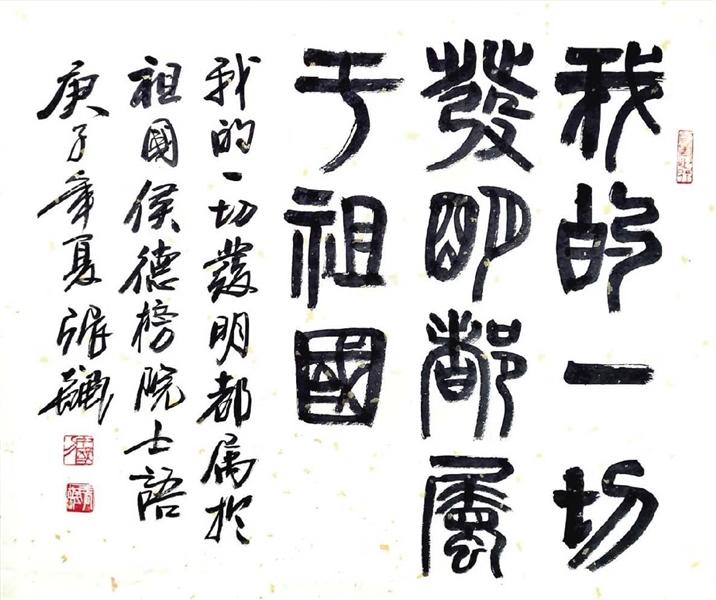 我的一切
發明都屬
于祖國
我的一切發明都属於
祖國侯德榜院士語
庚子年夏張飆